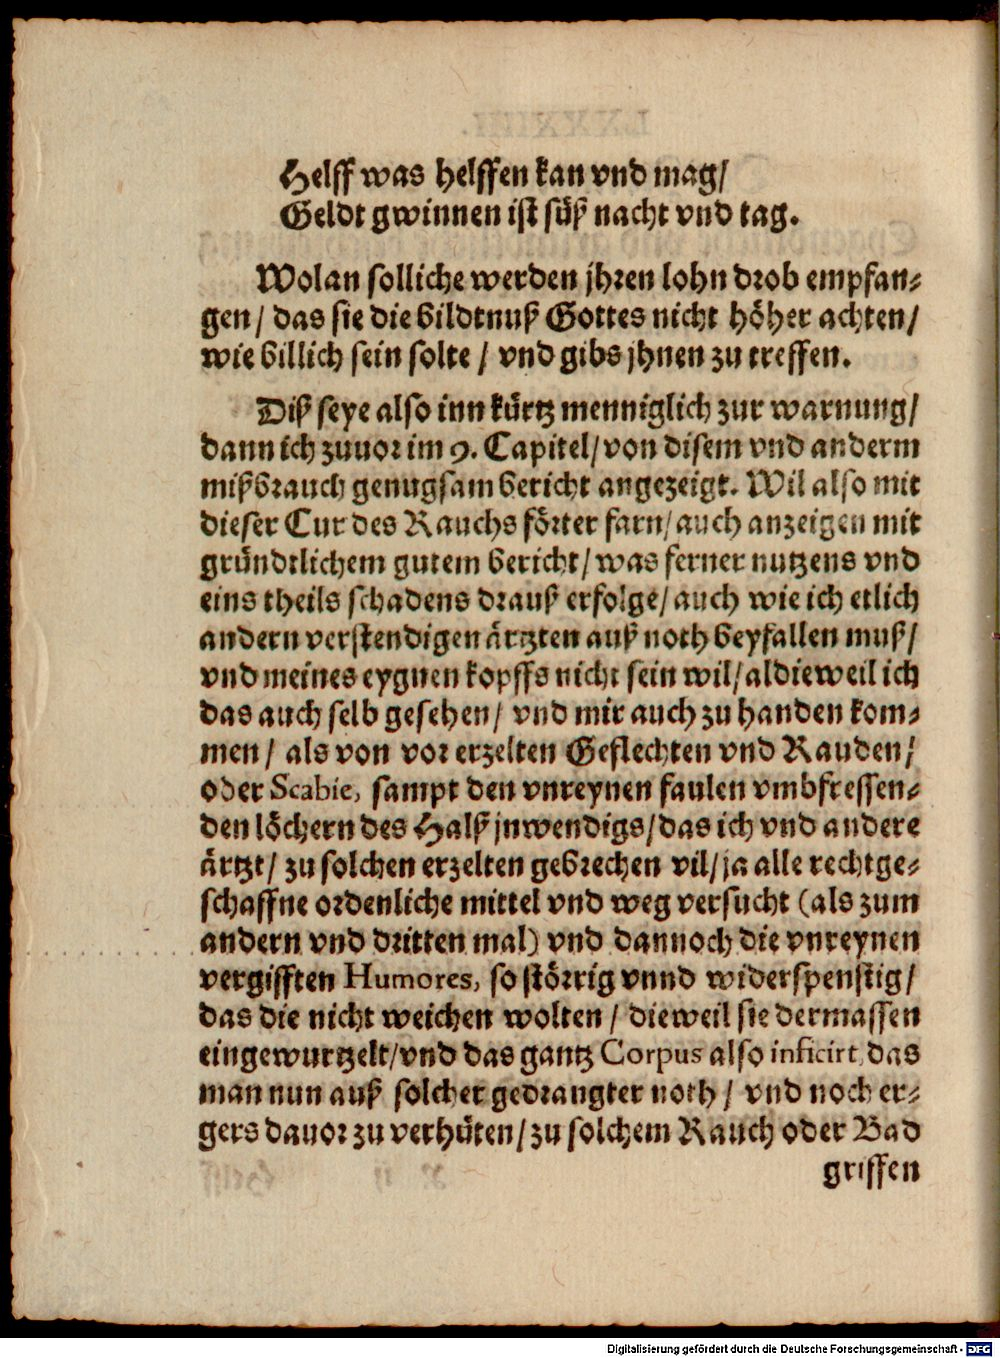 Helff was helffen kan vnd mag/
Geldt gwinnen ist süß nacht vnd tag.
Wolan solliche werden jhren lohn drob empfan⸗
gen/ das sie die bildtnuß Gottes nicht höher achten/
wie billich sein solte/ vnd gibs jhnen zu treffen.
Diß seye also inn kürtz menniglich zur warnung/
dann ich zuuor im 9. Capitel/ von disem vnd anderm
mißbrauch genugsam bericht angezeigt. Wil also mit
dieser Cur des Rauchs förter farn/ auch anzeigen mit
gründtlichem gutem bericht/ was ferner nutzens vnd
eins theils schadens drauß erfolge/ auch wie ich etlich
andern verstendigen ärtzten auß noth beyfallen muß/
vnd meines eygnen kopffs nicht sein wil/ aldieweil ich
das auch selb gesehen/ vnd mir auch zu handen kom⸗
men/ als von vor erzelten Geflechten vnd Rauden/
oder Scabie, sampt den vnreynen faulen vmbfressen⸗
den löchern des Halß jnwendigs/ das ich vnd andere
ärtzt/ zu solchen erzelten gebrechen vil/ ja alle rechtge⸗
schaffne ordenliche mittel vnd weg versucht (als zum
andern vnd dritten mal) vnd dannoch die vnreynen
vergifften Humores, so störrig vnnd widerspenstig/
das die nicht weichen wolten/ dieweil sie dermassen
eingewurtzelt/ vnd das gantz Corpus also inficirt, das
man nun auß solcher gedrangter noth/ vnd noch er⸗
gers dauor zu verhüten/ zu solchem Rauch oder Bad
griffen
Digitalisierung gefördert durch die Deutsche Forschungsgemeinschaft - DFG